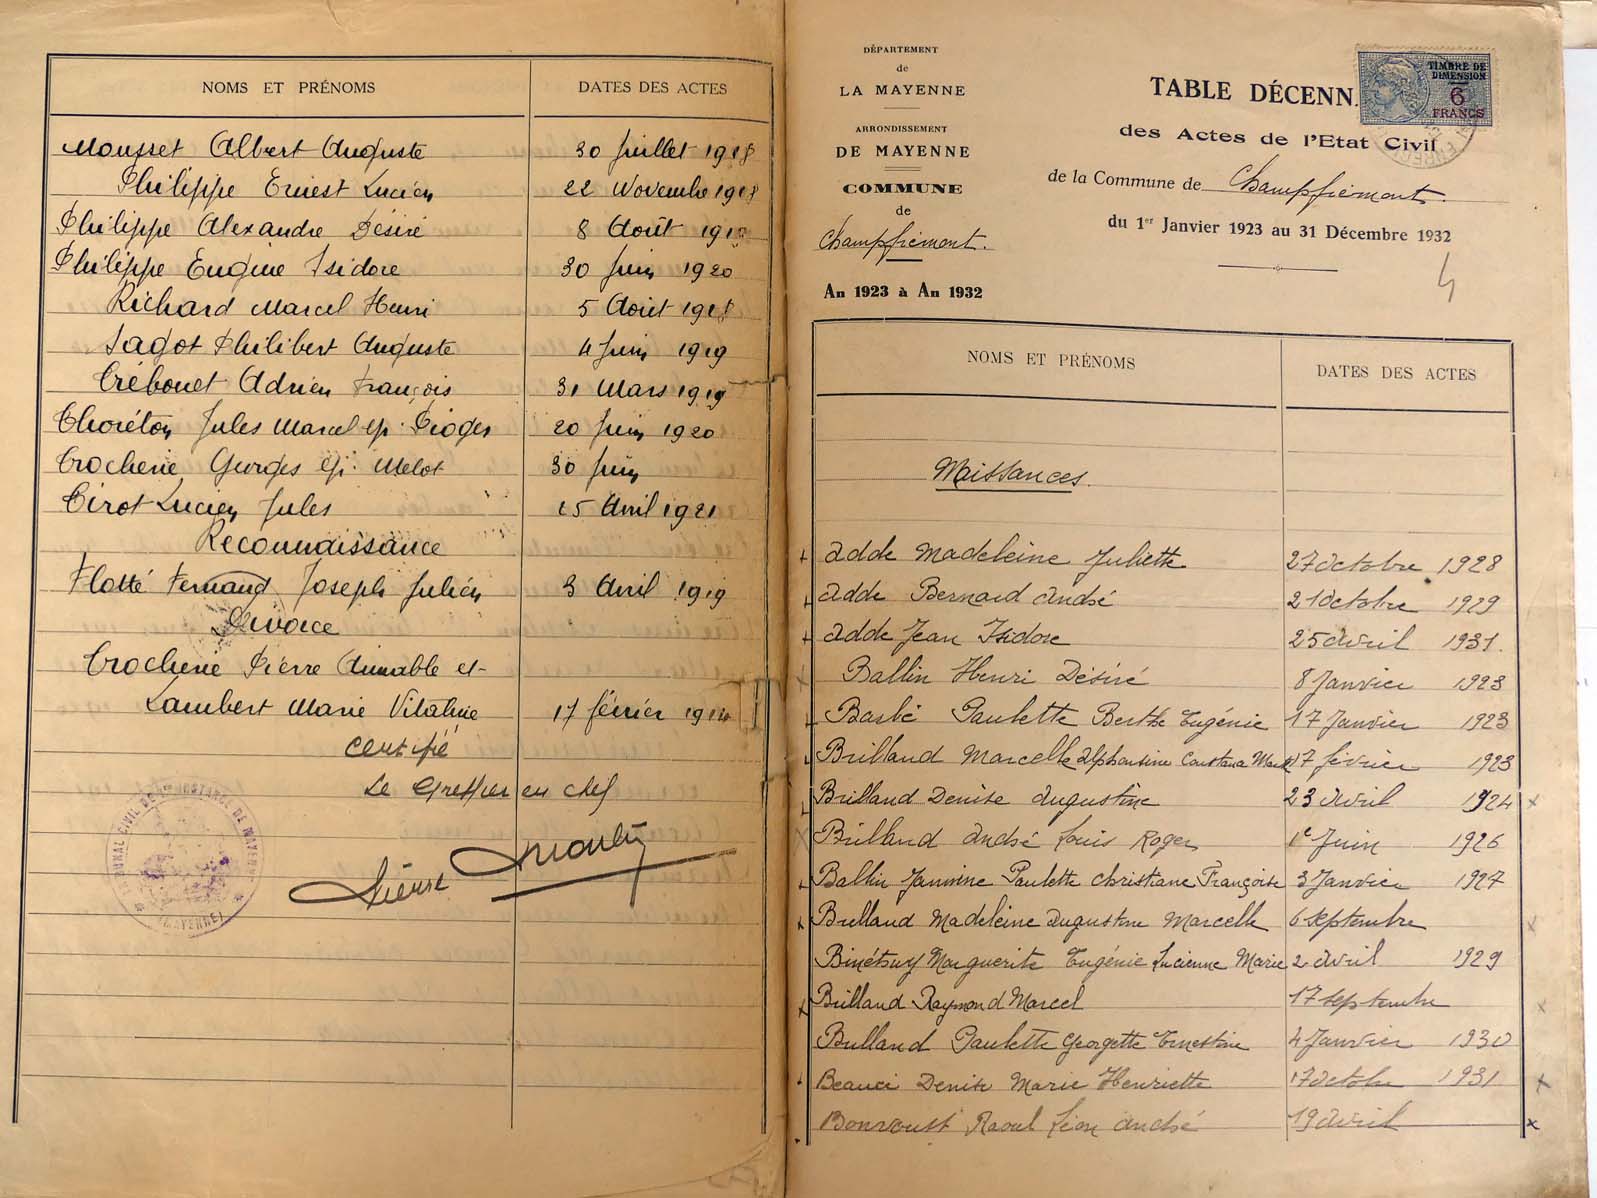 NOMS ET PRÉNOMS DATES DES ACTES
Mousset Albert Auguste 30 Juillet 1918
Philippe Ernest Lucien 22 Novembre 1918
Philippe Alexandre Désiré 8 Août
Philippe Eugène Isidore 30 Juin 1920
Richard Marcel Henri 5 Août 1918
Sagot Philibert Auguste 4 Juin 1919
Trébouet Adrien François 31 Mars 1919
Thoréton Jules Marcel ép. Pioger 20 Juin 1920
Trocherie Georges ép. Melot 30 Juin
Tirot Lucien Jules 15 Avril 1921
Reconnaissance
Flotté Fernand Joseph Julien 3 Avril 1919
Divorce
Trocherie Pierre Aimable et
Lambert Marie Vitaline 17 février
certifié
Le Greffier en chef
DÉPARTEMENT
de
LA MAYENNE
ARRONDISSEMENT
DE MAYENNE
COMMUNE
de
Champfrémont.
An 1923 à An 1932
TABLE DÉCENN
TIMBRE DE
DIMENSION
6
FRANCS
des Actes de l'Etat Civil
de la Commune de Champfrémont.
du 1er Janvier 1923 au 31 Décembre 1932
4
NOMS ET PRÉNOMS DATES DES ACTES
Naissances.
+ Adde Madeleine Juliette 27 Octobre 1928
+ Adde Bernard André 21 Octobre 1929
+ Adde Jean Isidore 25 Avril 1931.
x Ballin Henri Désiré 8 Janvier 1923
+ Barbé Paulette Berthe Eugénie 17 Janvier 1923
Brilland Marcelle Alphonsine Constance 17 février 1923
Brilland Denise Augustine 23 Avril 1924 x
x Brilland André Louis Roger 1e Juin 1926
+ Ballin Janvine Paulette Christiane Françoise 3 Janvier 1927
Brilland Madeleine Augustine Marcelle 6 septembre x
Binétruy Marguerite Eugénie Lucienne Marie 2 Avril 1929
x Brilland Raymond Marcel 17 septembre x
Brilland Paulette Georgette Ernestine 4 Janvier 1930
Beauci Denise Marie Henriette 17 Octobre 1931 x
Bonvoust Raoul Léon André 19 Avril x